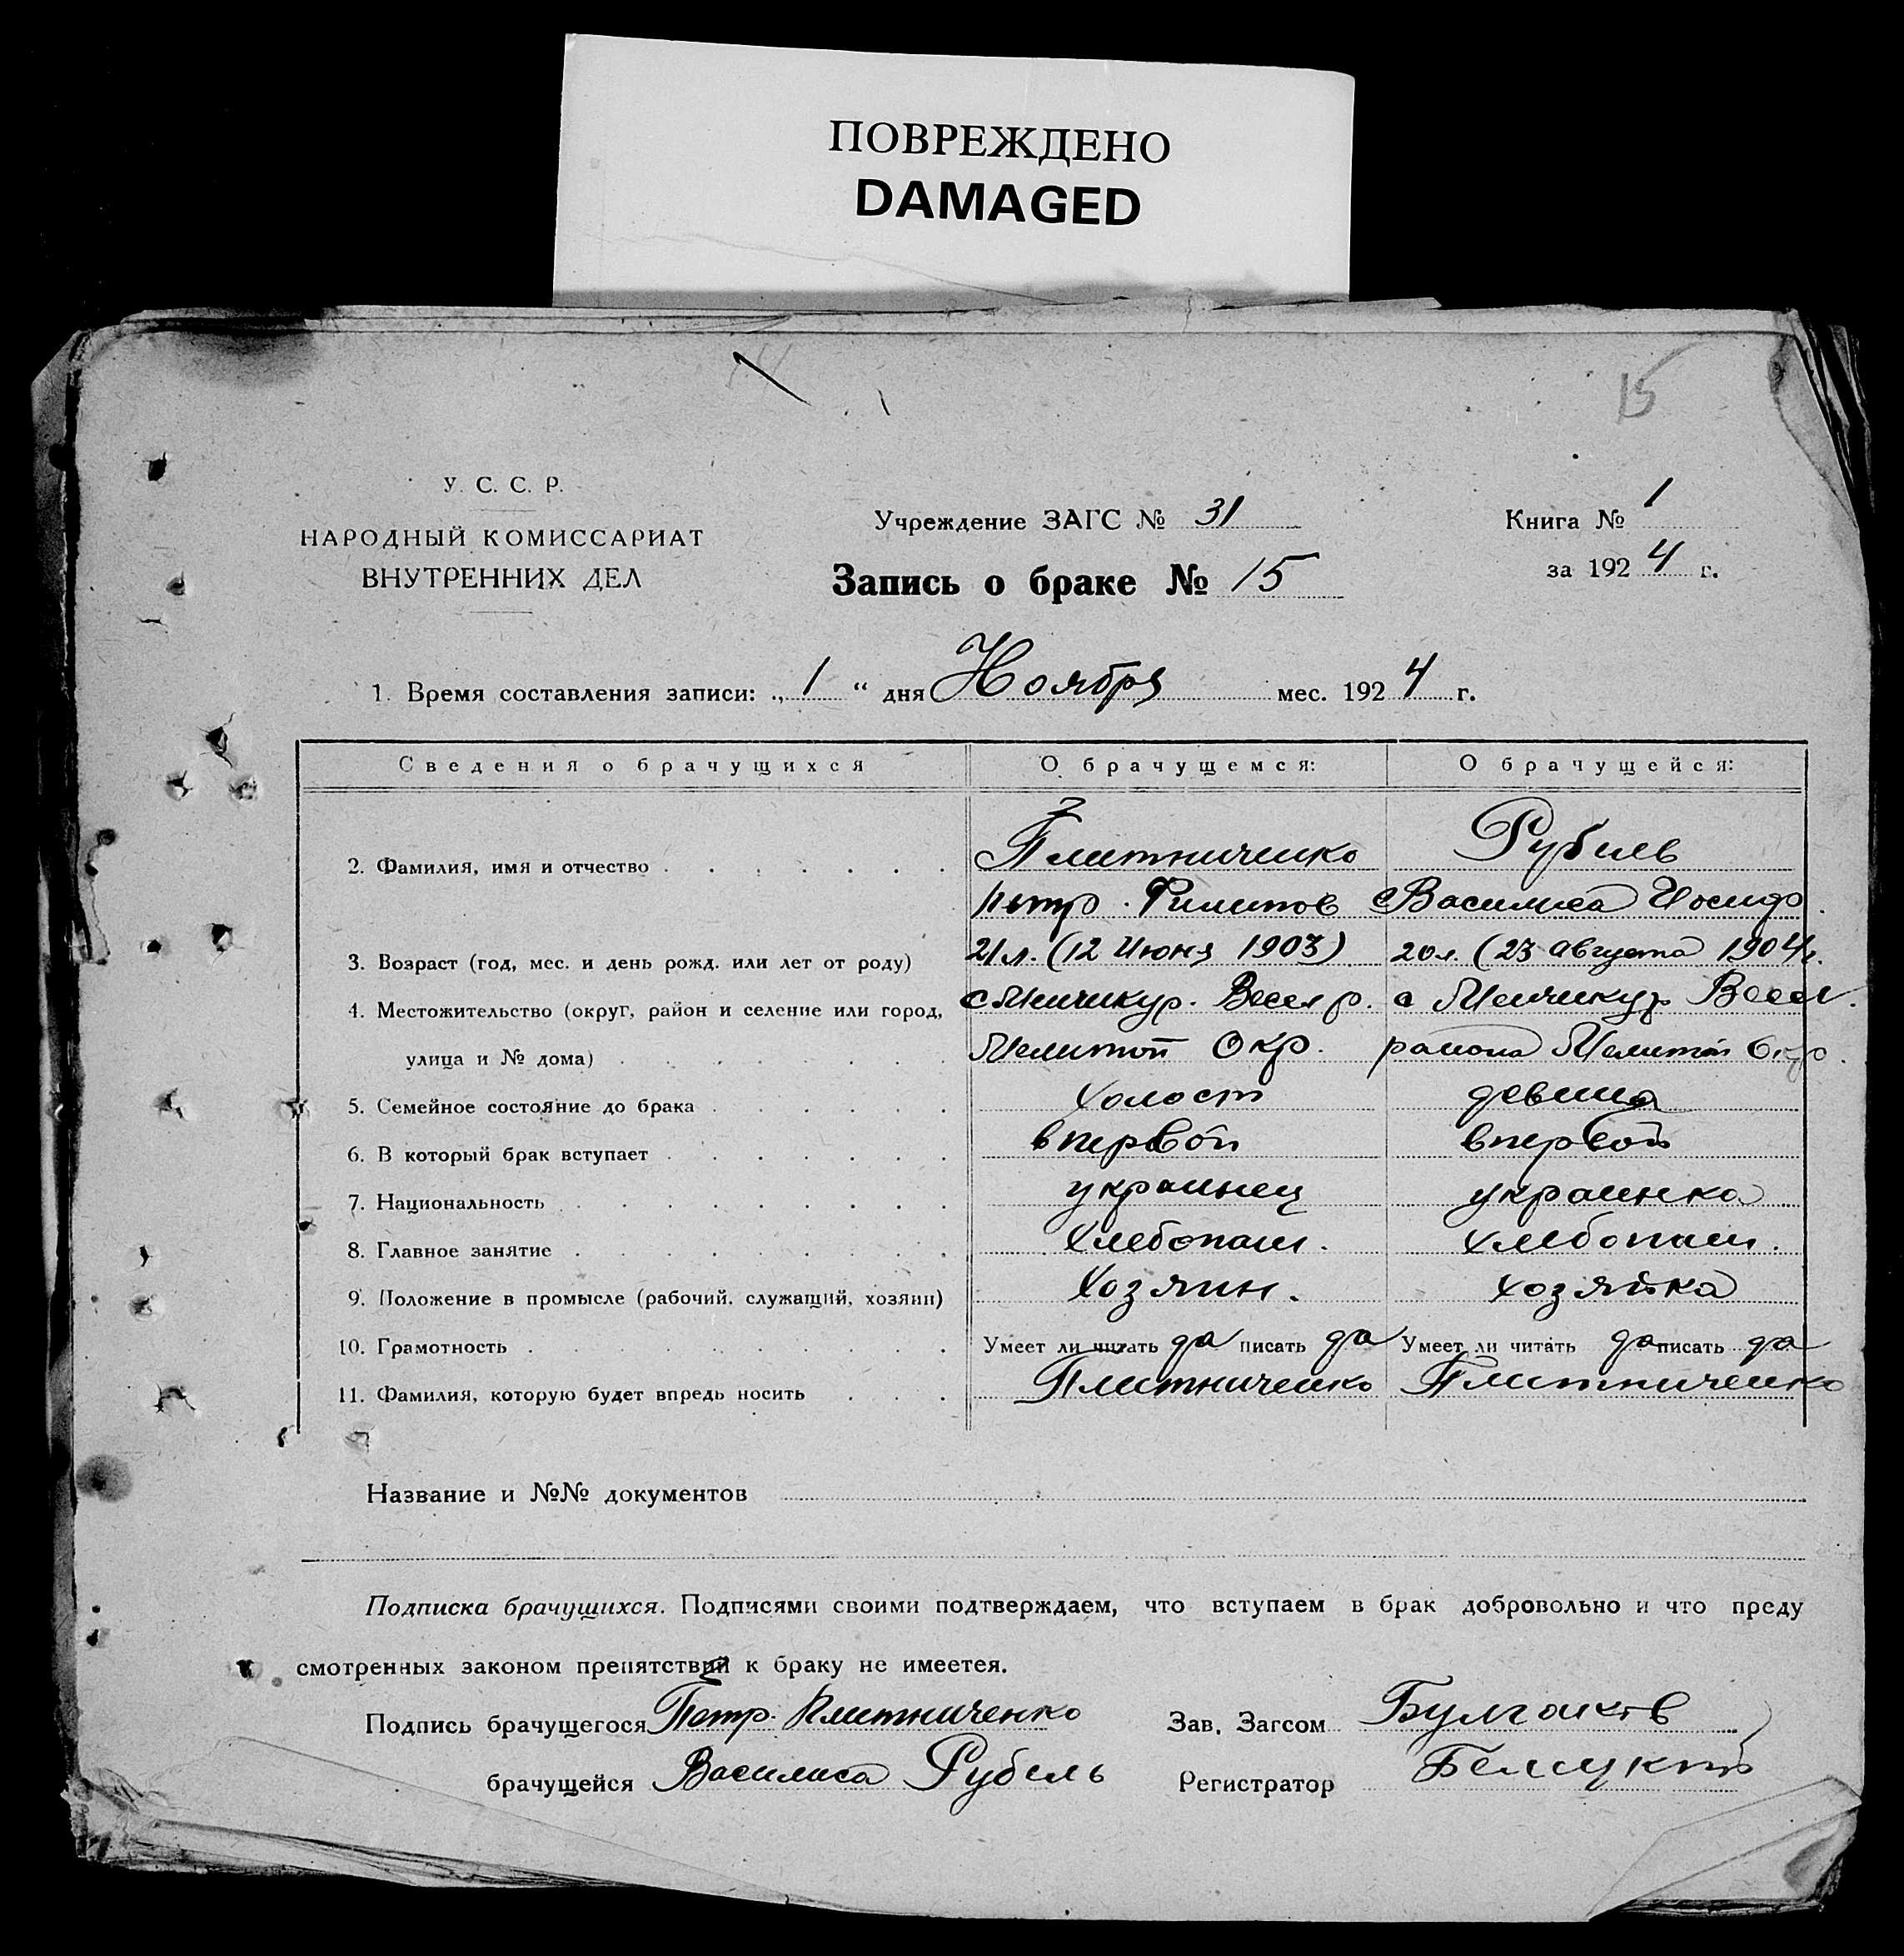 ПОВРЕЖДЕНО
DAMAGED
15
У. С. С. Р.
НАРОДНЫЙ КОМИССАРИАТ
ВНУТРЕННИХ ДЕЛ
Учреждение ЗАГС № 31
Запись о браке № 15
Книга № 1
за 1924 г.
1. Время составления записи: „1“ дня Ноября мес. 1924 г.
Сведения о брачущихся О брачущемся: О брачущейся:
2. Фамилия, имя и отчество Плитниченко Рубель
Петр Филипов Василиса Иосифо
3. Возраст (год, мес. и день рожд. или лет от роду) 21 л. (12 Июня 1903) 20 л. (23 августа 1904 г.
4. Местожительство (округ, район и селение или город, с Менчикур. Весел р. с Менчикур Весел.
улица и № дома) Мелитоп Окр. района Мелитоп Окр.
5. Семейное состояние до брака Холост девица
6. В который брак вступает впервой впервой
7. Национальность украинец украинка
8. Главное занятие Хлебопаш. Хлебопаш.
9. Положение в промысле (рабочий, служащий, хозяин) Хозяин. хозяйка
10. Грамотность Умеет ли читать да писать да Умеет ли читать да писать да
11. Фамилия, которую будет впредь носить Плитниченко Плитниченко
Название и №№ документов
Подписка брачущихся. Подписями своими подтверждаем, что вступаем в брак добровольно и что преду
смотренных законом препятствий к браку не имеетея.
Подпись брачущегося Петр Плитниченко Зав. Загсом Булгаков
брачущейся Василиса Рубель Регистратор